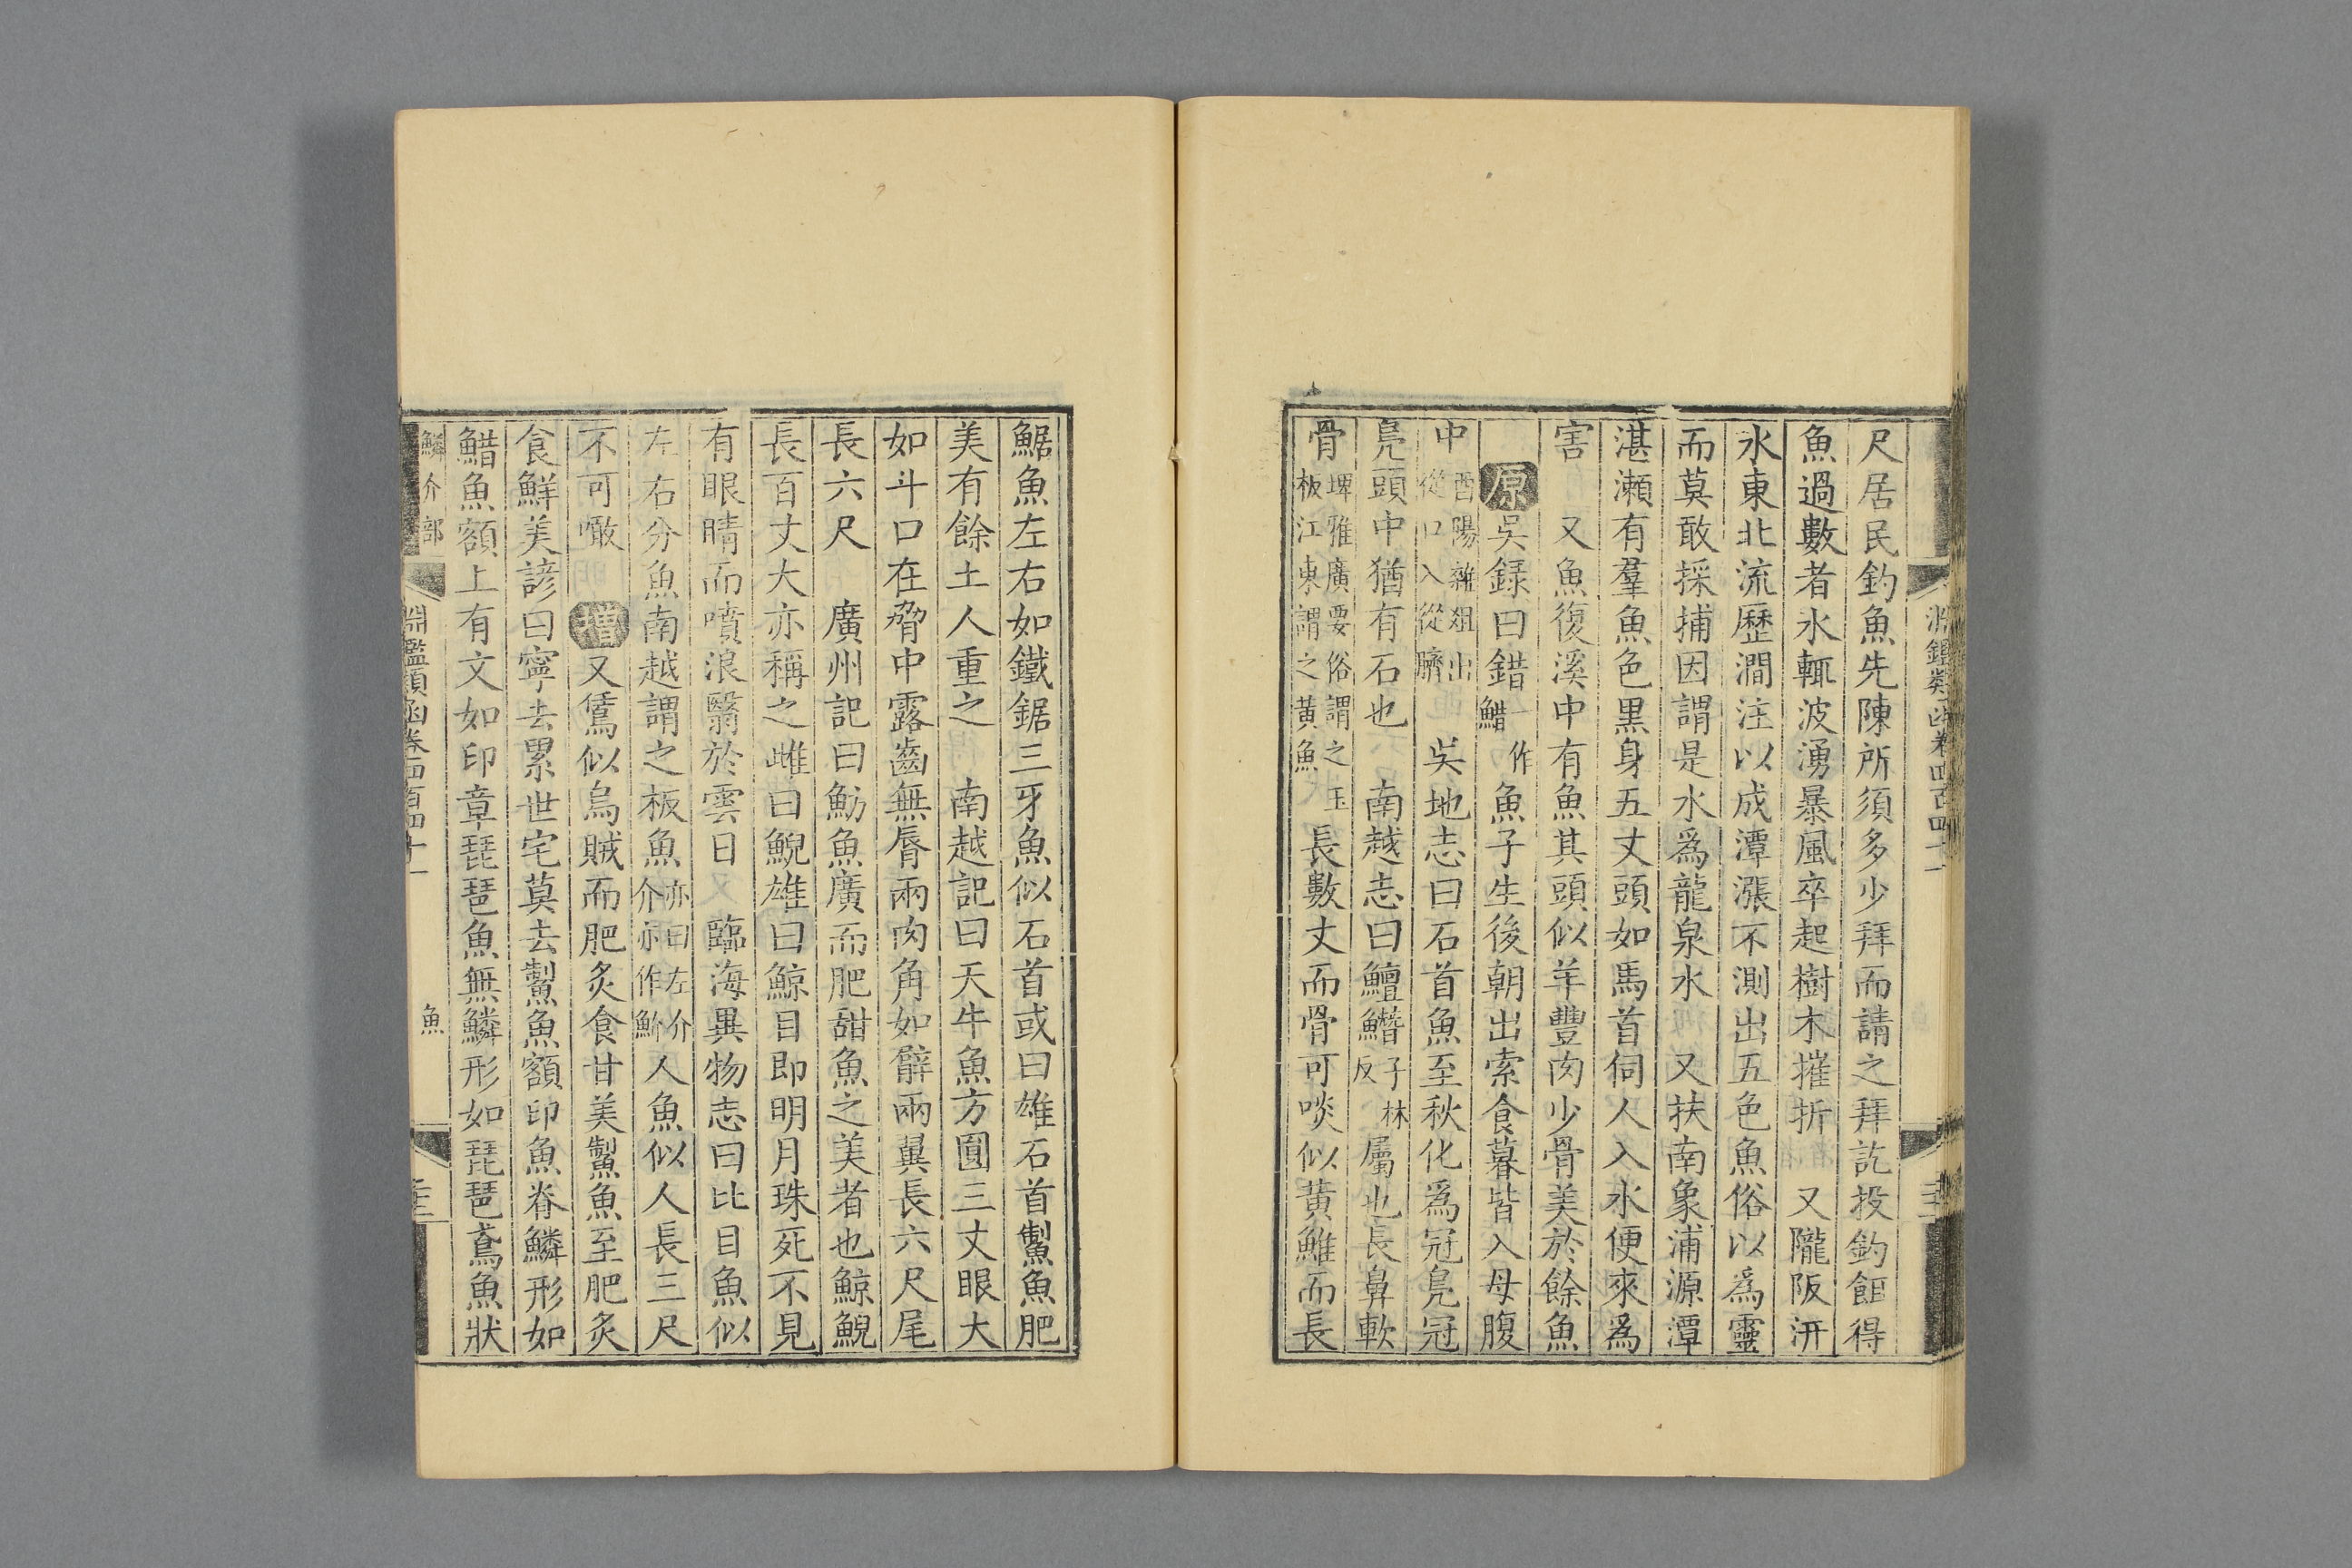 淵鑑類函卷四百四十一
尺居民釣魚先陳所須多少拜而請之拜訖投釣餌得
魚過數者水輒波湧暴風卒起樹木摧折　又隴阪汧
水東北流歷澗注以成潭漲不測出五色魚俗以爲靈
而莫敢採捕因謂是水爲龍泉水　又扶南象浦源潭
湛瀨有羣魚色黑身五丈頭如馬首伺人入水便來爲
害　又魚復溪中有魚其頭似羊豐肉少骨美於餘魚
原吳録曰錯一作䱜魚子生後朝出索食暮皆入母腹
中酉陽雜俎出從口入從臍　吳地志曰石首魚至秋化爲冠鳧冠
鳧頭中猶有石也　南越志曰鱣鱕子林反屬也長鼻軟
骨埤雅廣要俗謂之玉板江東謂之黃魚長數丈而骨可啖似黃鯀而長
鋸魚左右如鐵鋸三牙魚似石首或曰雄石首鮆魚肥
美有餘土人重之　南越記曰天牛魚方圓三丈眼大
如斗口在脅中露齒無脣兩肉角如臂兩翼長六尺尾
長六尺　廣州記曰魴魚廣而肥甜魚之美者也鯨鯢
長百丈大亦稱之雌曰鯢雄曰鯨目即明月珠死不見
有眼睛而噴浪翳於雲日　臨海異物志曰比目魚似
左右分魚南越謂之板魚亦曰左介介亦作魪人魚似人長三尺
不可噉　增又鴜似烏賊而肥炙食甘美鮆魚至肥炙
食鮮美諺曰寧去累世宅莫去鮆魚額印魚脊鱗形如
䱜魚額上有文如印章琵琶魚無鱗形如琵琶鳶魚狀
鱗介部
淵鑑類函卷四百四十一
魚